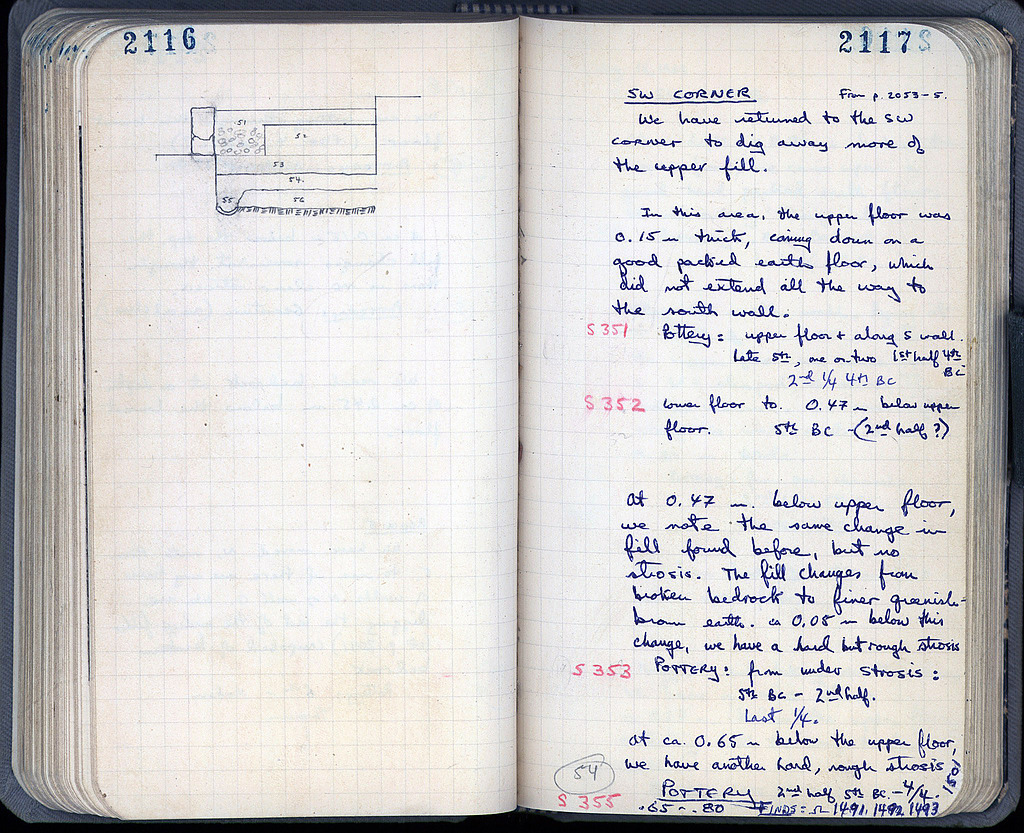 2116
51
52
53
54.
55
56
2117
SW CORNER From p. 2053-5.
We have returned to the SW
corner to dig away more of
the upper fill.
In this area, the upper floor was
0.15 m thick, coming down on a
good packed earth floor, which
did not extend all the way to
the south wall.
S 351 Pottery: upper floor & along S wall.
Late 5th, one or two 1st half 4th
BC
2nd 1/4 4th BC
S 352 Lower floor to 0.47 m below upper
floor. 5th BC - (2nd half?)
At 0.47 m. below upper floor,
we note the same change in
fill found before, but no
strosis. The fill changes from
broken bedrock to finer greenish-
brown earth. ca 0.05 m below this
change, we have a hard but rough strosis
S 353 POTTERY: from under strosis:
5th BC - 2nd half.
Last 1/4.
At ca. 0.65 m below the upper floor,
we have another hard, rough strosis.
54
S 355 POTTERY 2nd half 5th BC. - 4/4.
.65 - .80 FINDS: Ω 1491, 1492, 1493
1501